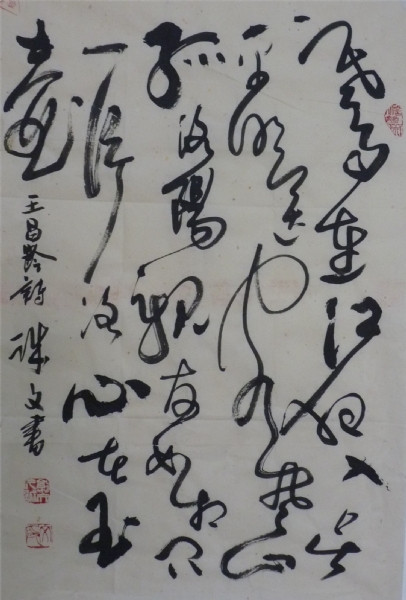 寒雨連江夜入吳
平明送客楚山
孤洛陽親友如相問
一片冰心在玉
壺
王昌齡詩 文書